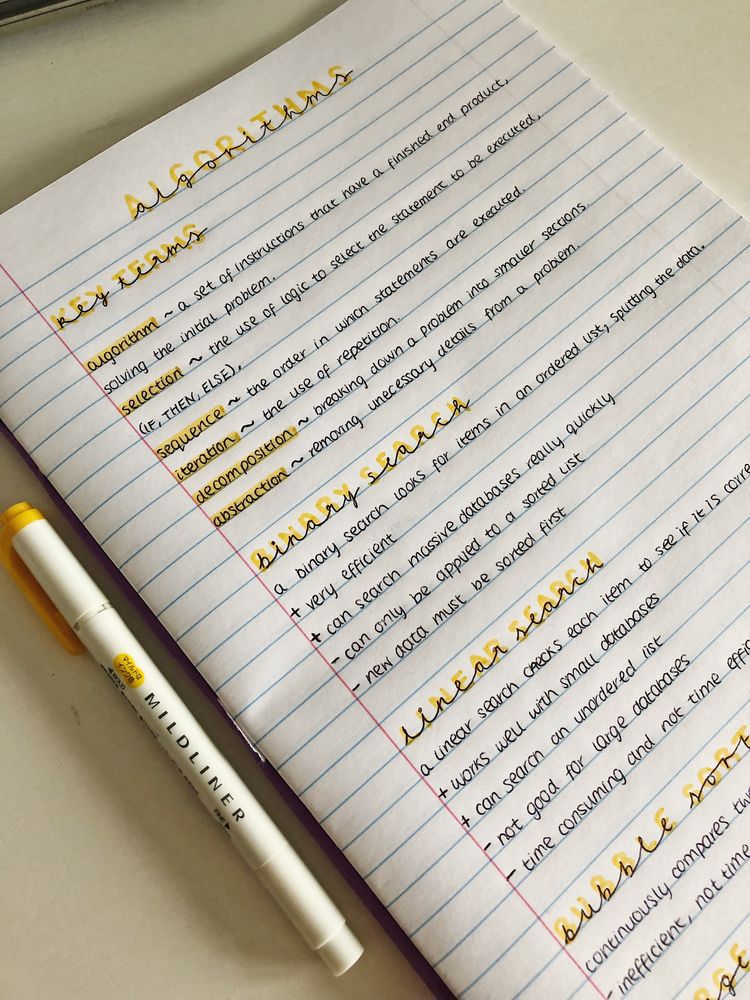 ALGORITHMS
algorithms
KEY TERMS
key terms
algorithm ~ a set of instructions that have a finished end product,
solving the initial problem.
selection ~ the use of logic to select the statement to be executed,
(IF, THEN, ELSE),
sequence ~ the order in which statements are executed.
iteration ~ the use of repetition.
decomposition ~ breaking down a problem into smaller sections.
abstraction ~ removing unecessary details from a problem.
BINARY SEARCH
binary search
a binary search looks for items in an ordered list, splitting the data.
+ very efficient
+ can search massive databases really quickly
- can only be applied to a sorted list
- new data must be sorted first
LINEAR SEARCH
linear search
a linear search checks each item to see if it is corre
+ works well with small databases
+ can search an unordered list
- not good for large databases
- time consuming and not time effi
BUBBLE SORT
bubble sort
continuously compares tw
- inefficient, not time
マイルドな
インク色
BOLD
MILDLINER
FINE